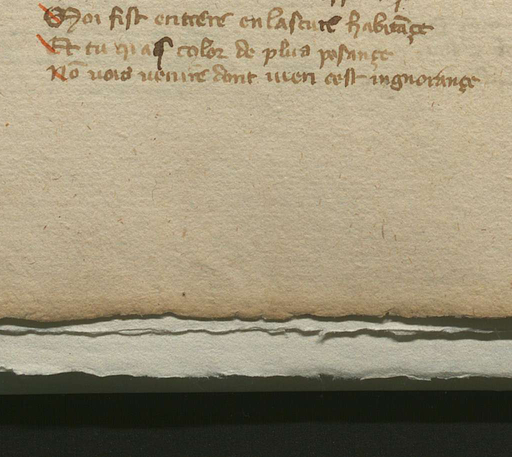 Moi fist entrere en lascure habitãçe
Et tu qi as color de plus pesançe
Nõ vois venire dont vien cest ingnorançe